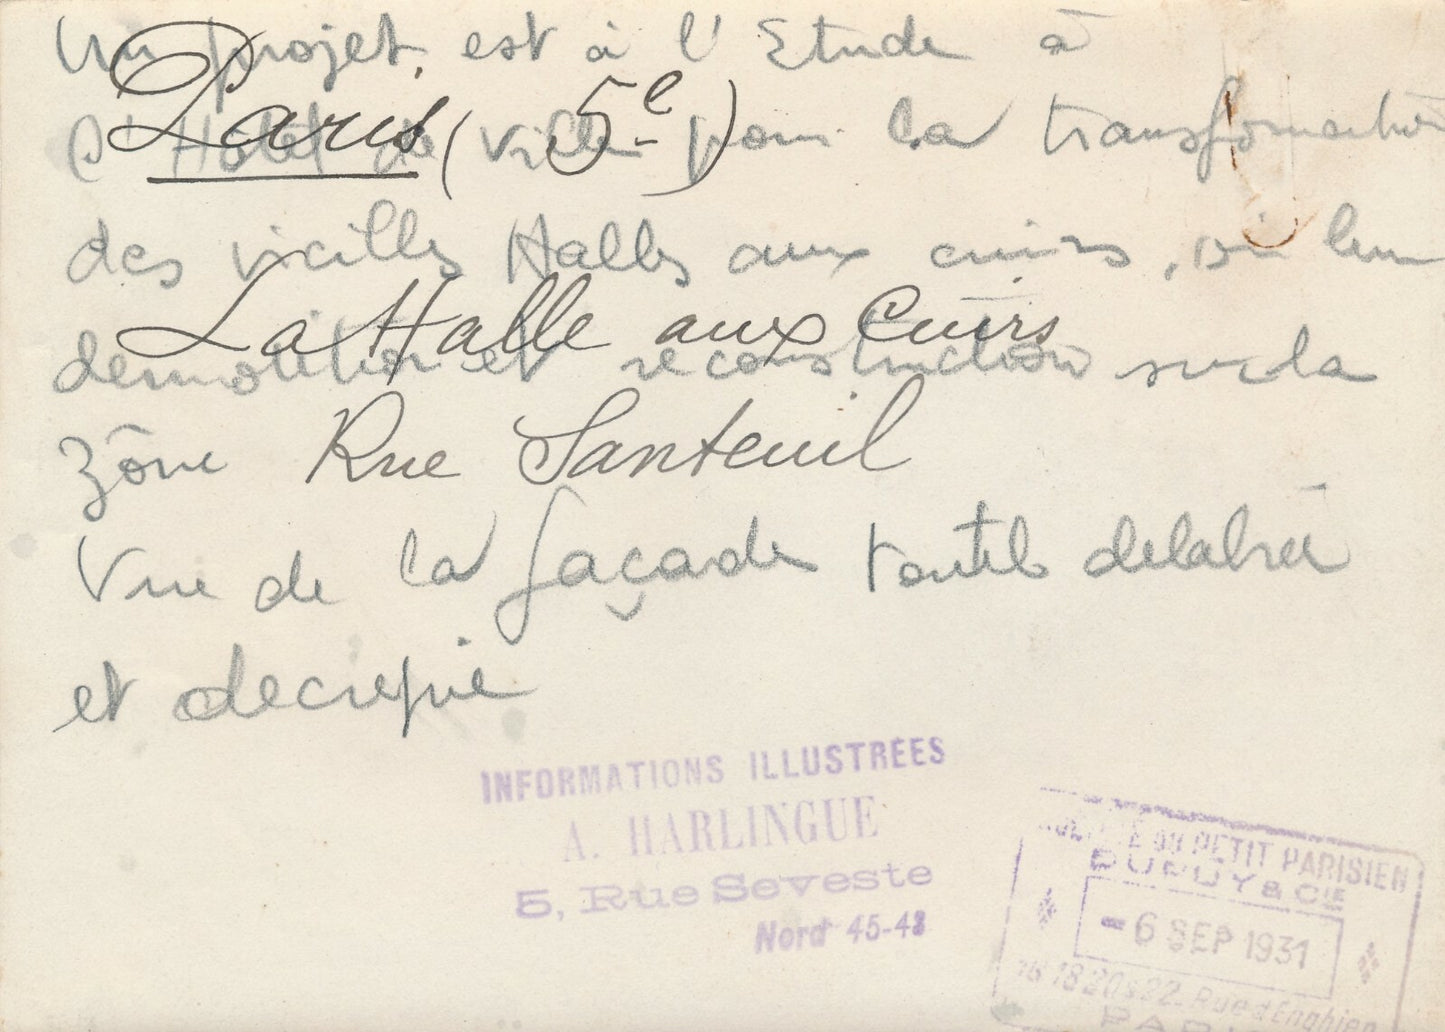 Un projet est à l'Etude à
l'Hôtel de Ville pour la transformation
des vieilles Halles aux cuirs, ou leur
demolition et reconstruction sur la
zône
Vue de la façade toute delabrée
et decrepie
Paris (5e)
La Halle aux Cuirs
Rue Santeuil
INFORMATIONS ILLUSTRÉES
A. HARLINGUE
5, Rue Seveste
Nord 45-48
SOCIÉTÉ DU PETIT PARISIEN
DUPUY & CIE
-6 SEP 1931
16 18 20 & 22. Rue d'Enghien
PARIS